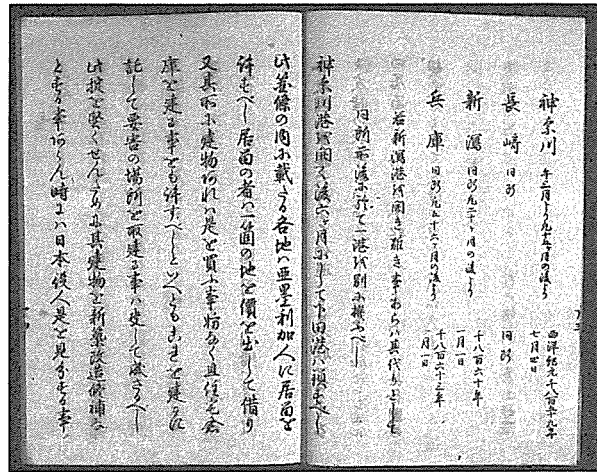 神奈川 午三月より凡十五ヶ月の後より 西洋紀元千八百五十九年
七月四日
長崎 同断 同断
新潟 同断凡二十ヶ月の後より 千八百六十年
一月一日
兵庫 同断凡五十六ヶ月の後より 千八百六十三年
一月一日
若新潟港を開き難き事あらは其代りとして
同所前後に於て一港を別に撰ふへし
神奈川港を開く後六ヶ月にして下田港は鎖すへし
此箇條の内に載たる各地は亜墨利加人に居留を
許すへし居留の者は一箇の地を價を出して借り
又其所に建物あれは是を買ふ事妨なく且住宅倉
庫を建る事をも許すへしといへとも是を建るに
託して要害の場所を取建る事は決して成さるへし
此掟を堅くせんために其建物を新築改造修補な
とする事あらん時には日本役人是を見分する事